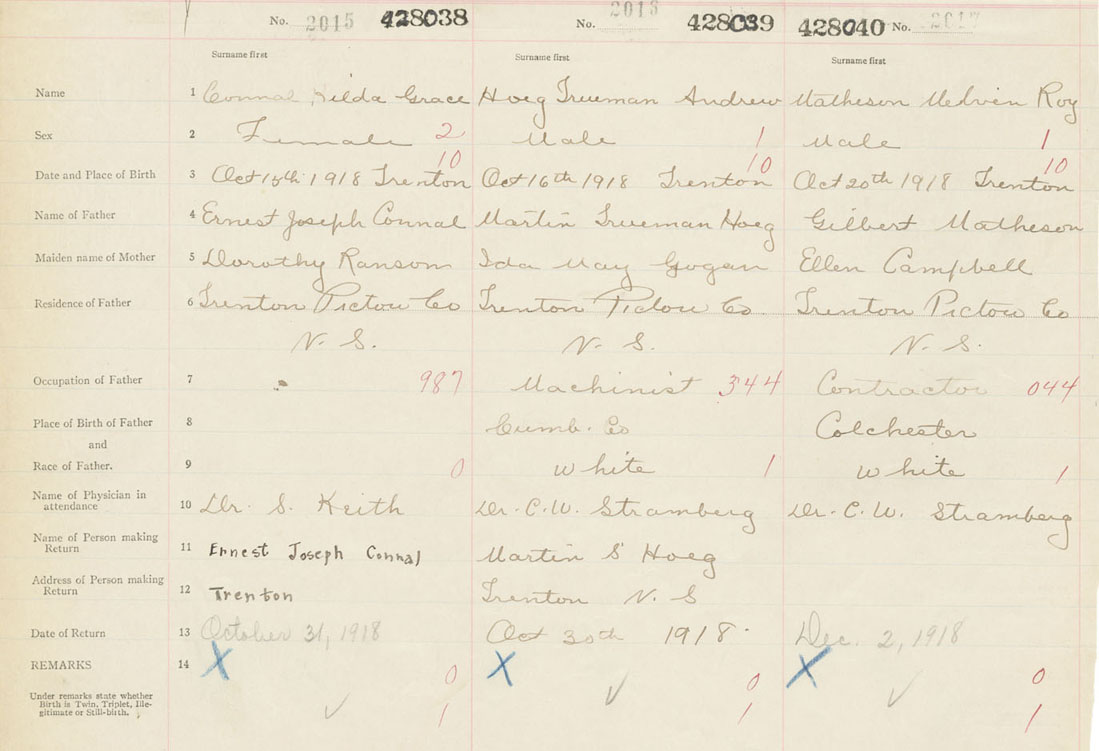 No. 2015 428038 No. 2016 428039 428040 No. 2017
Surname first Surname first Surname first
Name 1 Connal Hilda Grace Hoeg Trueman Andrew Matheson Medvin Roy
Sex 2 Female 2 Male 1 Male 1
10 10 10
Date and Place of Birth 3 Oct 15th 1918 Trenton Oct 16th 1918 Trenton Oct 20th 1918 Trenton
Name of Father 4 Ernest Joseph Connal Martin Trueman Hoeg Gilbert Matheson
Maiden name of Mother 5 Dorothy Ransom Ida May Gogan Ellen Campbell
Residence of Father 6 Trenton Pictou Co Trenton Pictou Co. Trenton Pictou Co
N. S. N. S. N. S.
Occupation of Father 7 987 Machinist 344 Contractor 044
Place of Birth of Father 8 Cumb. Co Colchester
and
Race of Father. 9 0 White 1 White 1
Name of Physician in
attendance 10 Dr. S. Keith Dr. C. W. Stramberg Dr. C. W. Stramberg
Name of Person making
Return 11 Ernest Joseph Connal Martin S Hoeg
Address of Person making
Return 12 Trenton Trenton N. S
Date of Return 13 October 31, 1918 Oct 30th 1918. Dec. 2, 1918
REMARKS 14 X X X
0 0 0
Under remarks state whether
Birth is Twin, Triplet, Ille-
gitimate or Still-birth. 1 1 1